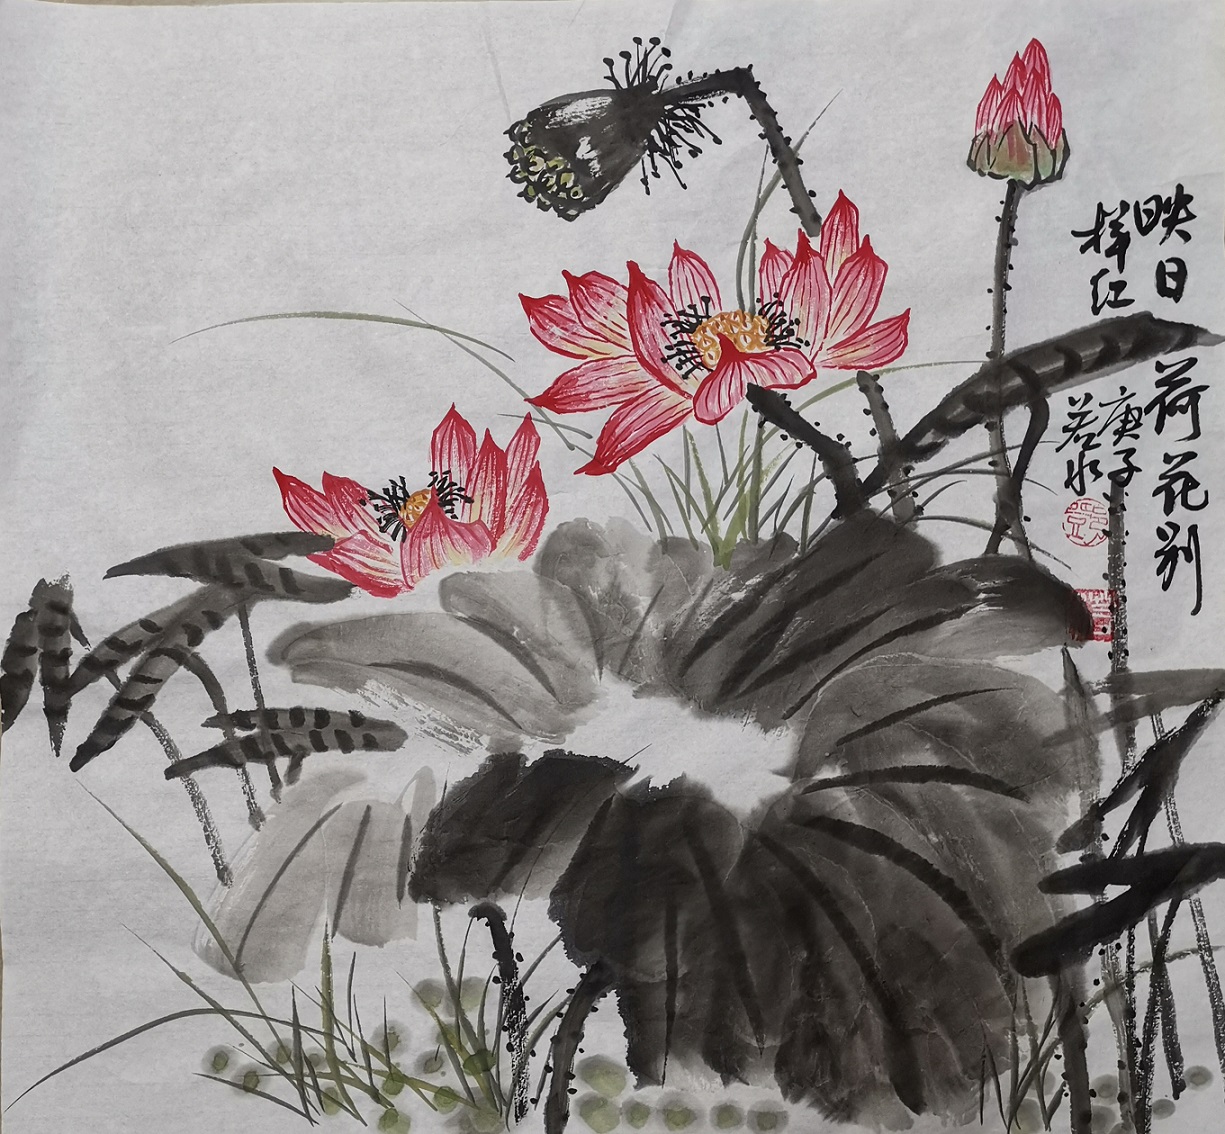 映日荷花别
样红
庚子
若水